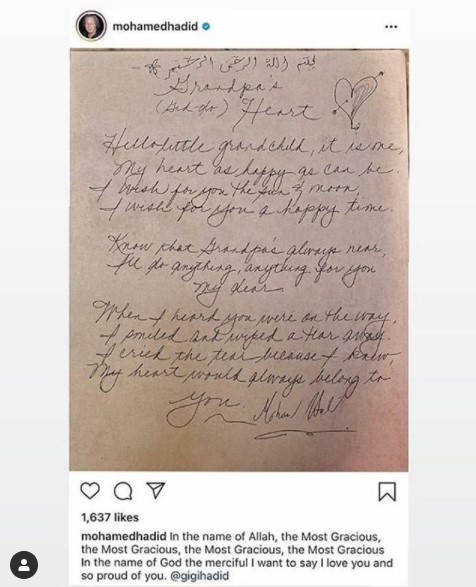 mohamedhadid
بسم اللة الرحمن الرحيم
Grandpa's
Heart
Hello little grandchild, it is me,
My heart as happy as can be.
I wish for you the sun & moon,
I wish for you a happy time.
Know that Grandpa's always near,
I'll do anything, anything for you
My dear.
When I heard you were on the way,
I smiled and wiped a tear away.
I cried the tear because I knew,
My heart would always belong to
you.
1,637 likes
mohamedhadid In the name of Allah, the Most Gracious,
the Most Gracious, the Most Gracious, the Most Gracious
In the name of God the merciful I want to say I love you and
so proud of you. @gigihadid